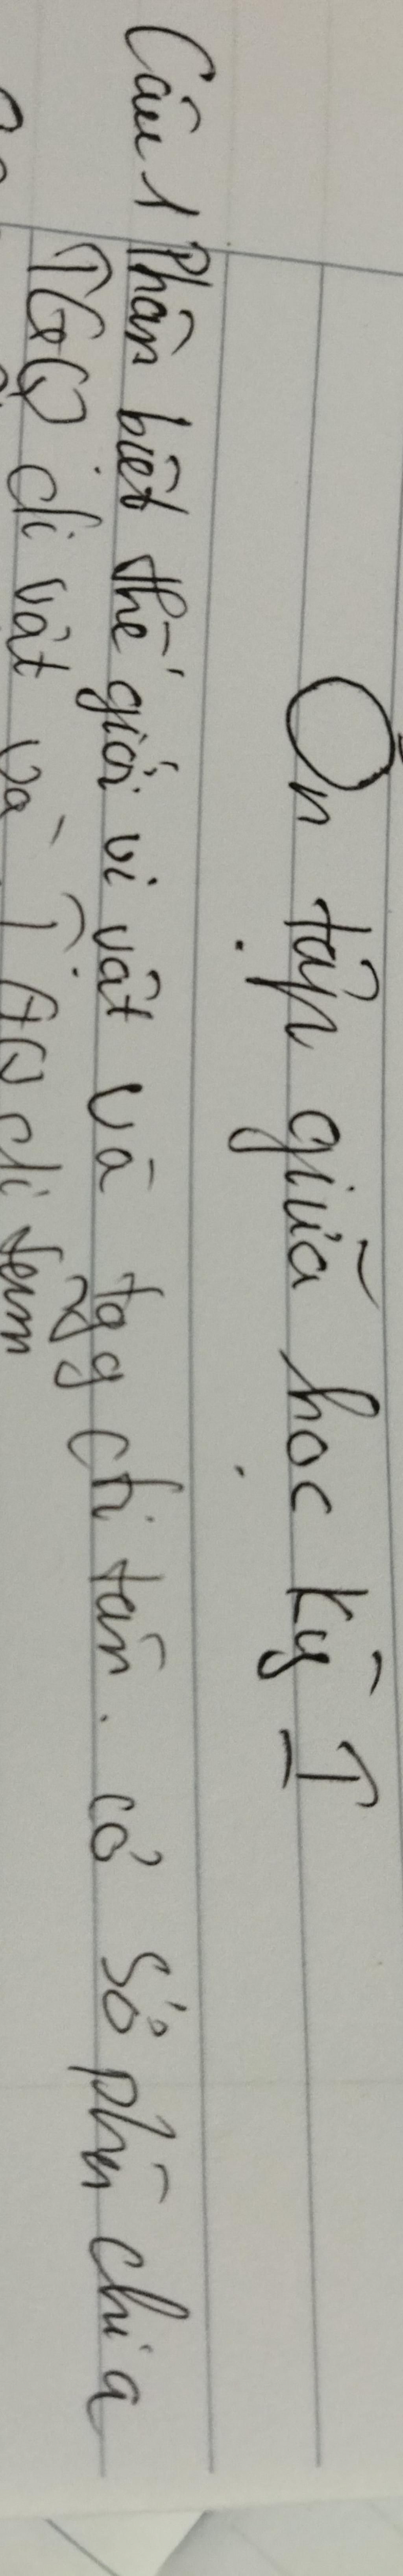 Ôn tập giữa học kỳ I
Câu 1 Phân biệt thế giới vi vật và tgq chi tân. cở sở phân chia
TGQ di vật và TGQ di tâm